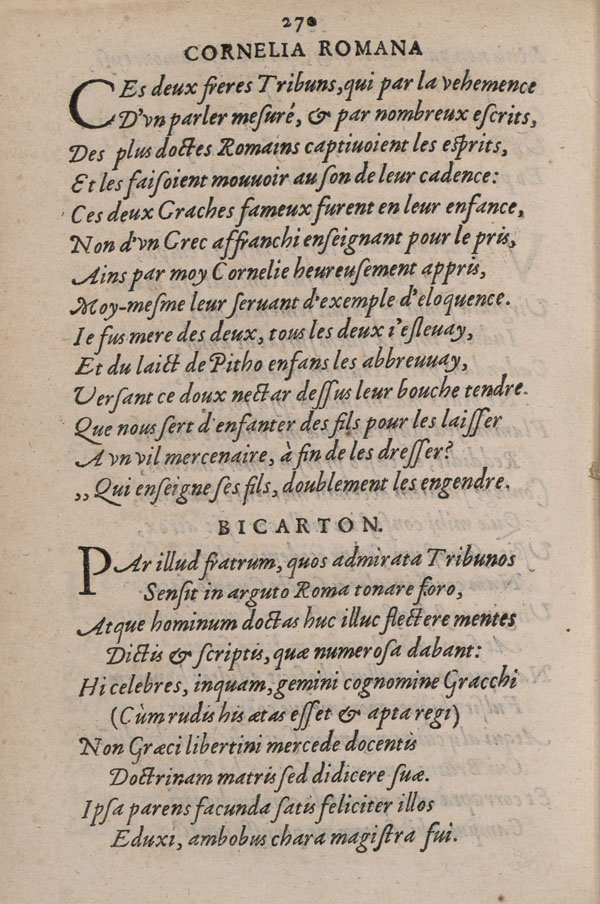 270
CORNELIA ROMANA
CEs deux freres Tribuns, qui par la vehemence
D'vn parler mesuré, & par nombreux escrits,
Des plus doctes Romains captiuoient les esprits,
Et les faisoient mouuoir au son de leur cadence:
Ces deux Graches fameux furent en leur enfance,
Non d'vn Grec affranchi enseignant pour le pris,
Ains par moy Cornelie heureusement appris,
Moy-mesme leur seruant d'exemple d'eloquence.
Ie fus mere des deux, tous les deux i'esleuay,
Et du laict de Pitho enfans les abbreuuay,
Versant ce doux nectar dessus leur bouche tendre.
Que nous sert d'enfanter des fils pour les laisser
A vn vil mercenaire, à fin de les dresser?
,,Qui enseigne ses fils, doublement les engendre.
BICARTON.
PAr illud fratrum, quos admirata Tribunos
Sensit in arguto Roma tonare foro,
Atque hominum doctas huc illuc flectere mentes
Dictis & scriptis, quæ numerosa dabant:
Hi celebres, inquam, gemini cognomine Gracchi
(Cùm rudis his ætas esset & apta regi)
Non Græci libertini mercede docentis
Doctrinam matris sed didicere suæ.
Ipsa parens facunda satis feliciter illos
Eduxi, ambobus chara magistra fui.